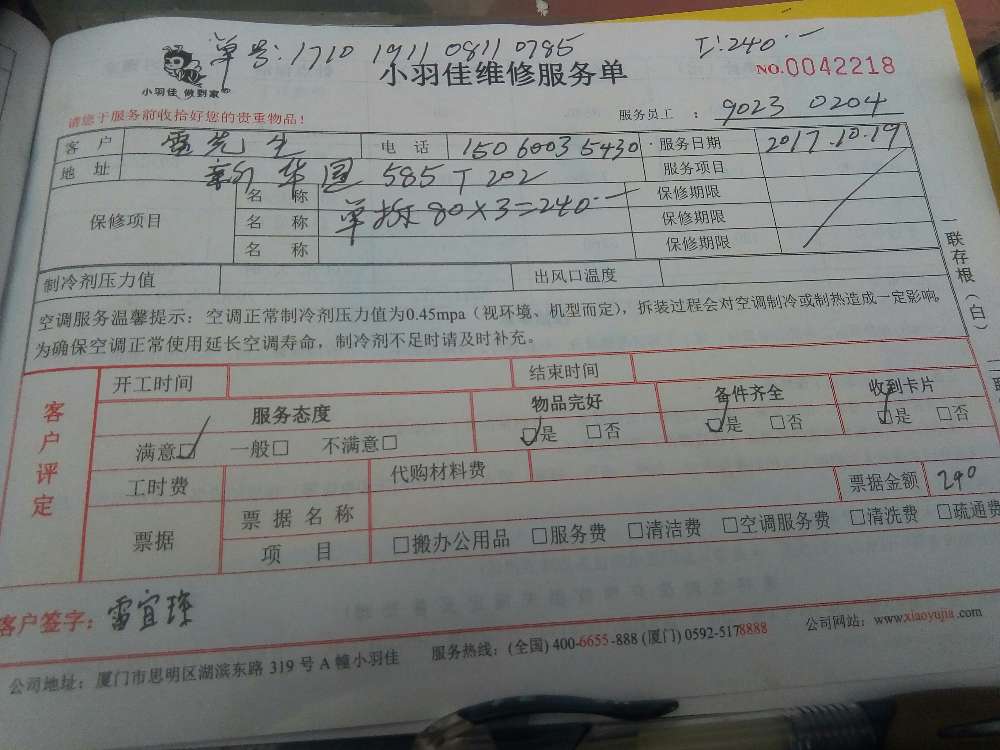 单号:1710 1911 0811 0785 工:240.一
小羽佳 做到家 小羽佳维修服务单 NO.0042218
请您于服务前收拾好您的贵重物品! 服务员工 : 9023 0204
客户 雷先生 电话 15060035430 服务日期 2017.10.19
地址 新华园 585 T 202 服务项目
保修项目 名称 单拆 80×3=240.一 保修期限
名称 保修期限
名称 保修期限
制冷剂压力值 出风口温度
空调服务温馨提示:空调正常制冷剂压力值为0.45mpa(视环境、机型而定),拆装过程会对空调制冷或制热造成一定影响。
为确保空调正常使用延长空调寿命,制冷剂不足时请及时补充。
一联存根(白)
客户评定
开工时间 结束时间
服务态度 物品完好 备件齐全 收到卡片
满意☑ 一般□ 不满意□ ☑是 □否 ☑是 □否 ☑是 □否
工时费 代购材料费
票据 票据名称 票据金额 240
项目 □搬办公用品 □服务费 □清洁费 □空调服务费 □清洗费 □疏通费
客户签字:雷宜
公司地址:厦门市思明区湖滨东路 319 号 A 幢小羽佳 服务热线:(全国) 400-6655-888 (厦门) 0592-5178888 公司网站:www.xiaoyujia.com